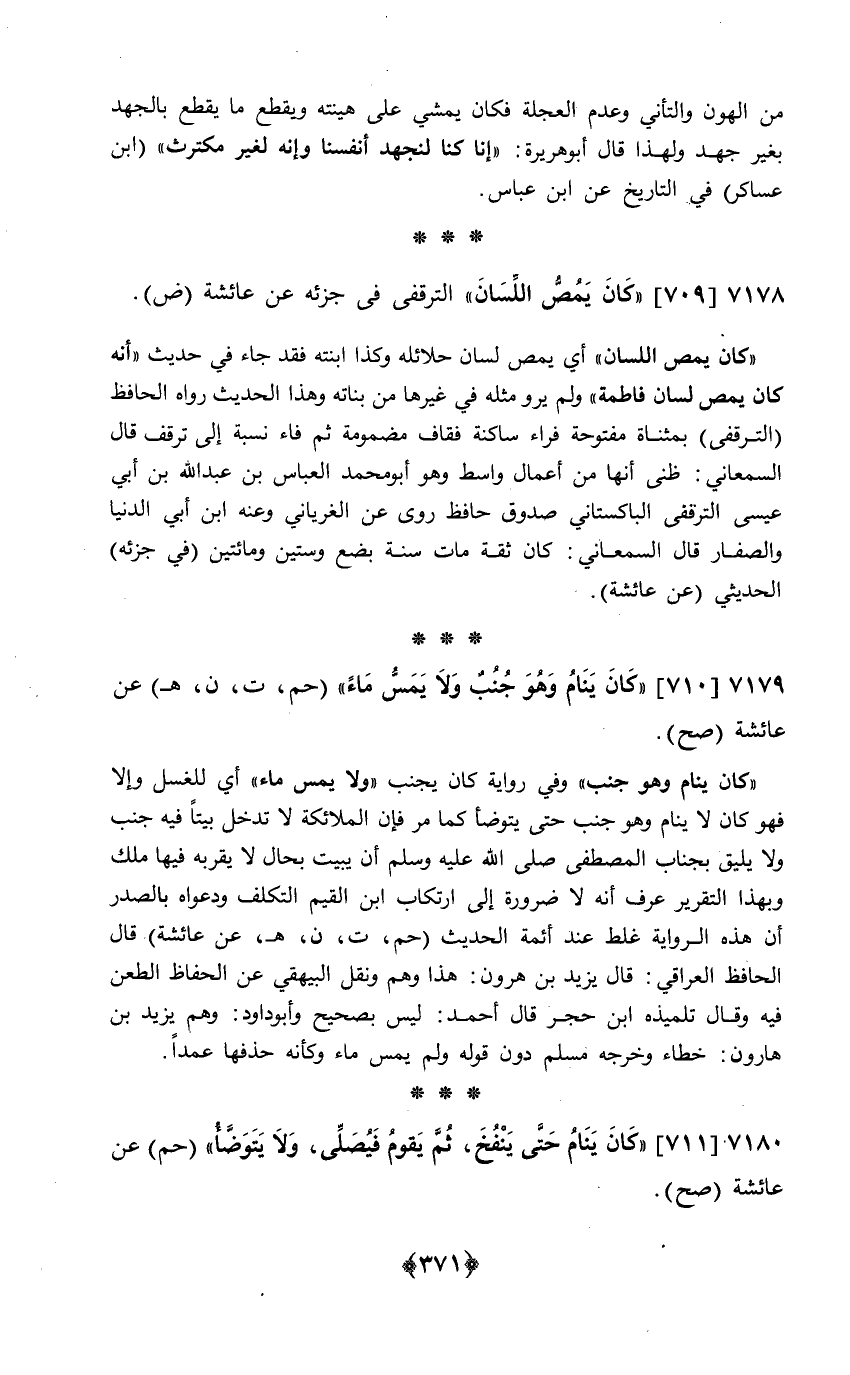 من الهون والتأني وعدم العجلة فكان يمشي على هينته ويقطع ما يقطع بالجهد
بغير جهد ولهذا قال أبوهريرة: «إنا كنا لنجهد أنفسنا وإنه لغير مكترث» (ابن
عساكر) في التاريخ عن ابن عباس.
* * *
٧١٧٨ [٧٠٩] «كَانَ يَمُصُّ اللِّسَانَ» الترقفى فى جزئه عن عائشة (ض).
«كان يمص اللسان» أي يمص لسان حلائله وكذا ابنته فقد جاء في حديث «أنه
كان يمص لسان فاطمة» ولم يرو مثله في غيرها من بناته وهذا الحديث رواه الحافظ
(الترقفى) بمثناة مفتوحة فراء ساكنة فقاف مضمومة ثم فاء نسبة إلى ترقف قال
السمعاني: ظنى أنها من أعمال واسط وهو أبومحمد العباس بن عبدالله بن أبي
عيسى الترقفى الباكستاني صدوق حافظ روى عن الغرياني وعنه ابن أبي الدنيا
والصفار قال السمعاني: كان ثقة مات سنة بضع وستين ومائتين (في جزئه)
الحديثي (عن عائشة).
* * *
٧١٧٩ [٧١٠] «كَانَ يَنَامُ وَهُوَ جُنُبٌ وَلَا يَمَسُّ مَاءً» (حم، ت، ن، هـ) عن
عائشة (صح).
«كان ينام وهو جنب» وفي رواية كان يجنب «ولا يمس ماء» أي للغسل وإلا
فهو كان لا ينام وهو جنب حتى يتوضأ كما مر فإن الملائكة لا تدخل بيتاً فيه جنب
ولا يليق بجناب المصطفى صلى الله عليه وسلم أن يبيت بحال لا يقربه فيها ملك
وبهذا التقرير عرف أنه لا ضرورة إلى ارتكاب ابن القيم التكلف ودعواه بالصدر
أن هذه الرواية غلط عند أئمة الحديث (حم، ت، ن، هـ، عن عائشة) قال
الحافظ العراقي: قال يزيد بن هرون: هذا وهم ونقل البيهقي عن الحفاظ الطعن
فيه وقال تلميذه ابن حجر قال أحمد: ليس بصحيح وأبوداود: وهم يزيد بن
هارون: خطاء وخرجه مسلم دون قوله ولم يمس ماء وكأنه حذفها عمداً.
* * *
٧١٨٠ [٧١١] «كَانَ يَنَامُ حَتَّى يَنْفُخَ، ثُمَّ يَقومُ فَيُصَلِّى، وَلَا يَتَوَضَّأُ» (حم) عن
عائشة (صح).
﴿٣٧١﴾